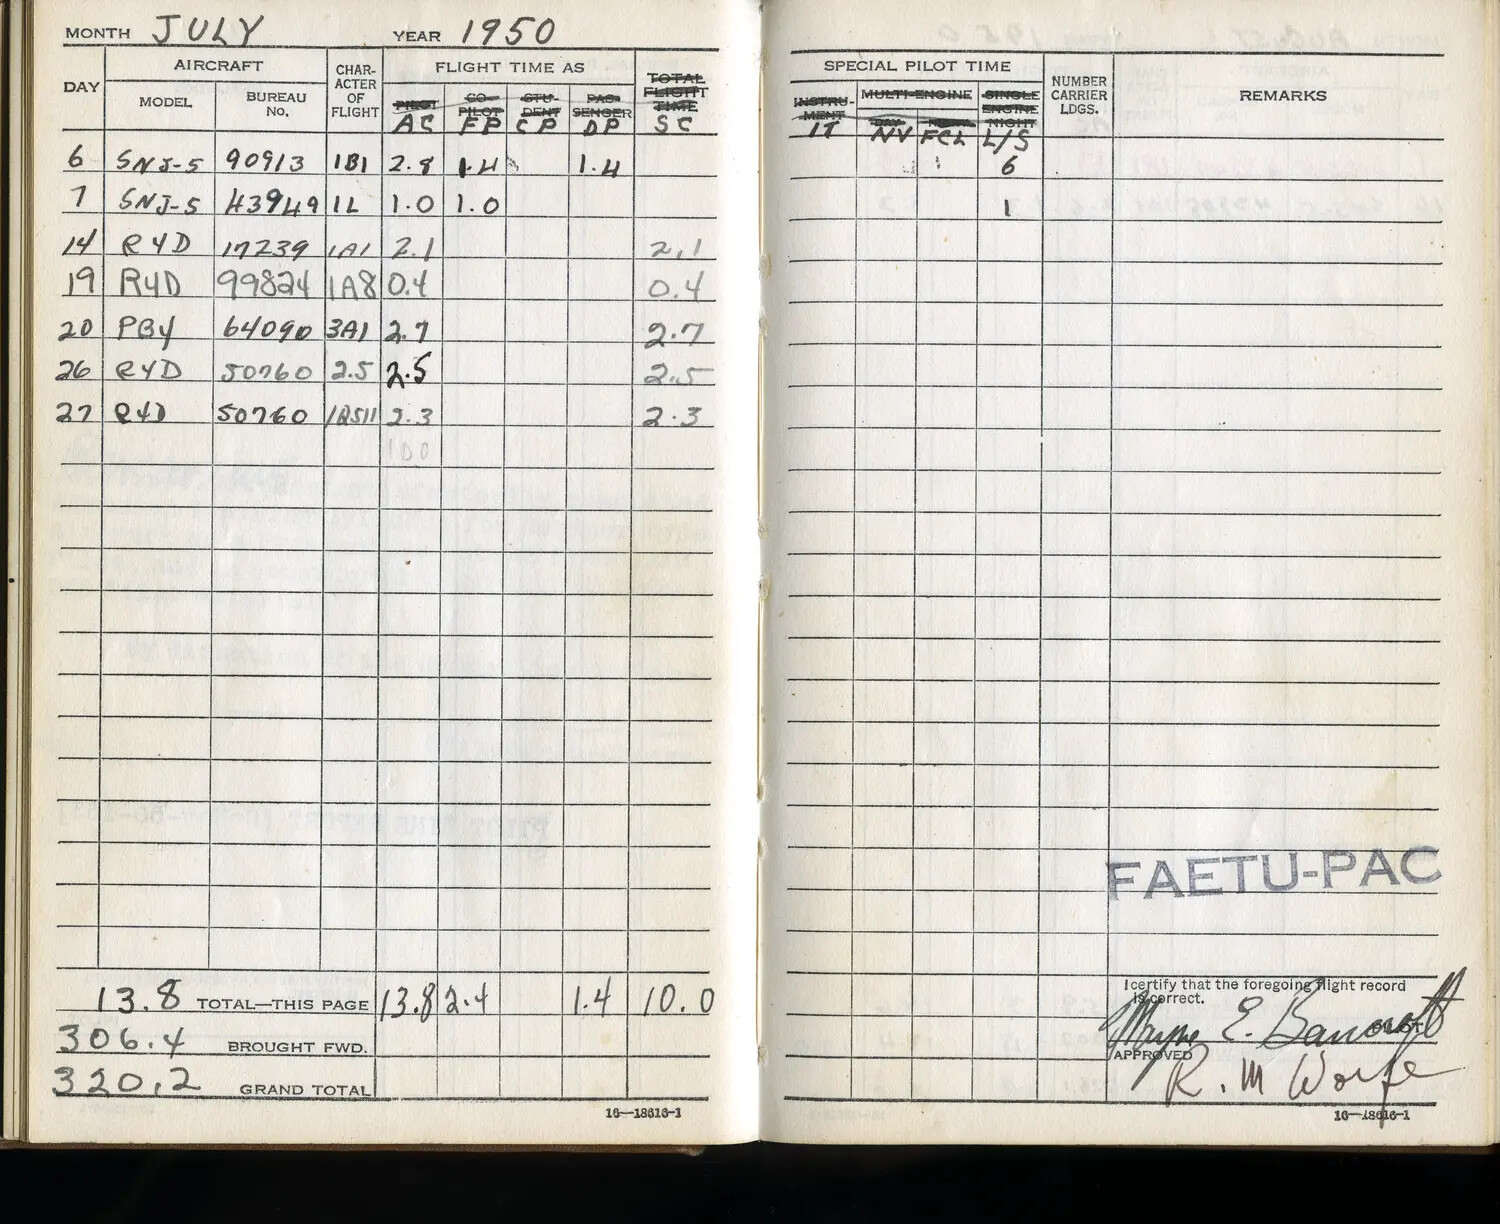 MONTH JULY YEAR 1950
DAY AIRCRAFT CHAR-ACTER OF FLIGHT FLIGHT TIME AS TOTAL FLIGHT TIME
MODEL BUREAU NO. PILOT CO-PILOT STU-DENT PAS-SENGER
AC FP CP DP SC
6 SNJ-5 90913 1B1 2.8 1.4 1.4
7 SNJ-5 43949 1L 1.0 1.0
14 R4D 17239 1A1 2.1 2.1
19 R4D 99824 1A8 0.4 0.4
20 PBY 64090 3A1 2.7 2.7
26 R4D 50760 2.5 2.5 2.5
27 R4D 50760 2.3 2.3
100
13.8 TOTAL—THIS PAGE 13.8 2.4 1.4 10.0
306.4 BROUGHT FWD.
320.2 GRAND TOTAL
16—18616-1
SPECIAL PILOT TIME NUMBER CARRIER LDGS. REMARKS
INSTRU-MENT MULTI-ENGINE SINGLE ENGINE NIGHT
DAY
IT NV FCL L/S
6
1
FAETU-PAC
I certify that the foregoing flight record
is correct.
Wayne E. Bancroft
PILOT
APPROVED
R. M Worfe
16—18616-1